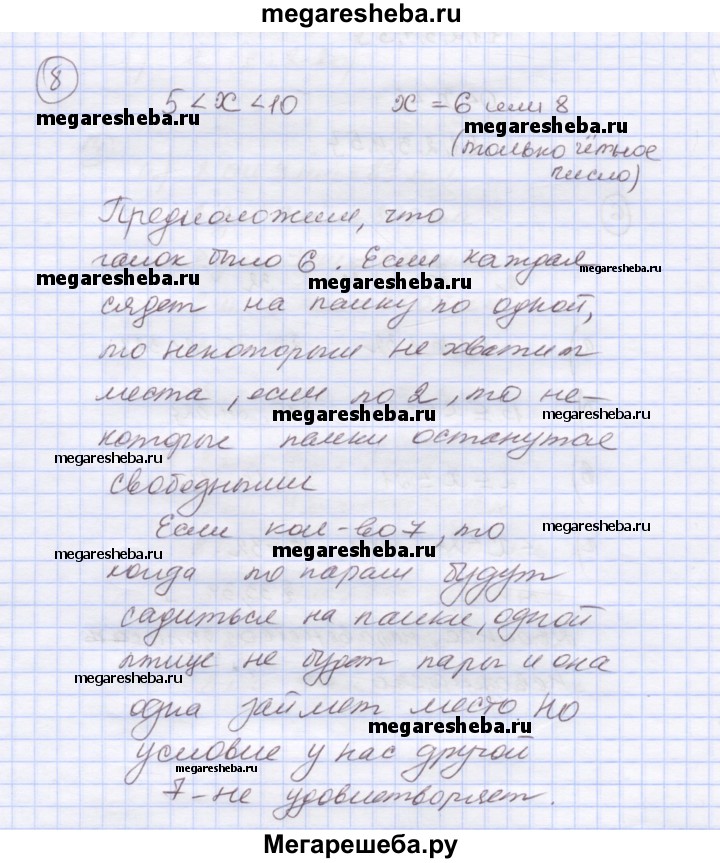 megaresheba.ru
8
5 < x < 10 x = 6 или 8
megaresheba.ru
megaresheba.ru
(только чётное
число)
Предположим, что
галок было 6. Если каждая
megaresheba.ru
megaresheba.ru
сядет на палку по одной,
то некоторым не хватит
места, если по 2, то не-
megaresheba.ru
megaresheba.ru
которые палки останутся
megaresheba.ru
свободными
Если кол-во 7, то
megaresheba.ru
megaresheba.ru
megaresheba.ru
когда по парам будут
садиться на палки, одной
птице не будет пары и она
megaresheba.ru
одна займет место Но
megaresheba.ru
условие у нас другой
megaresheba.ru
7 - не удовлетворяет.
Мегарешеба.ру